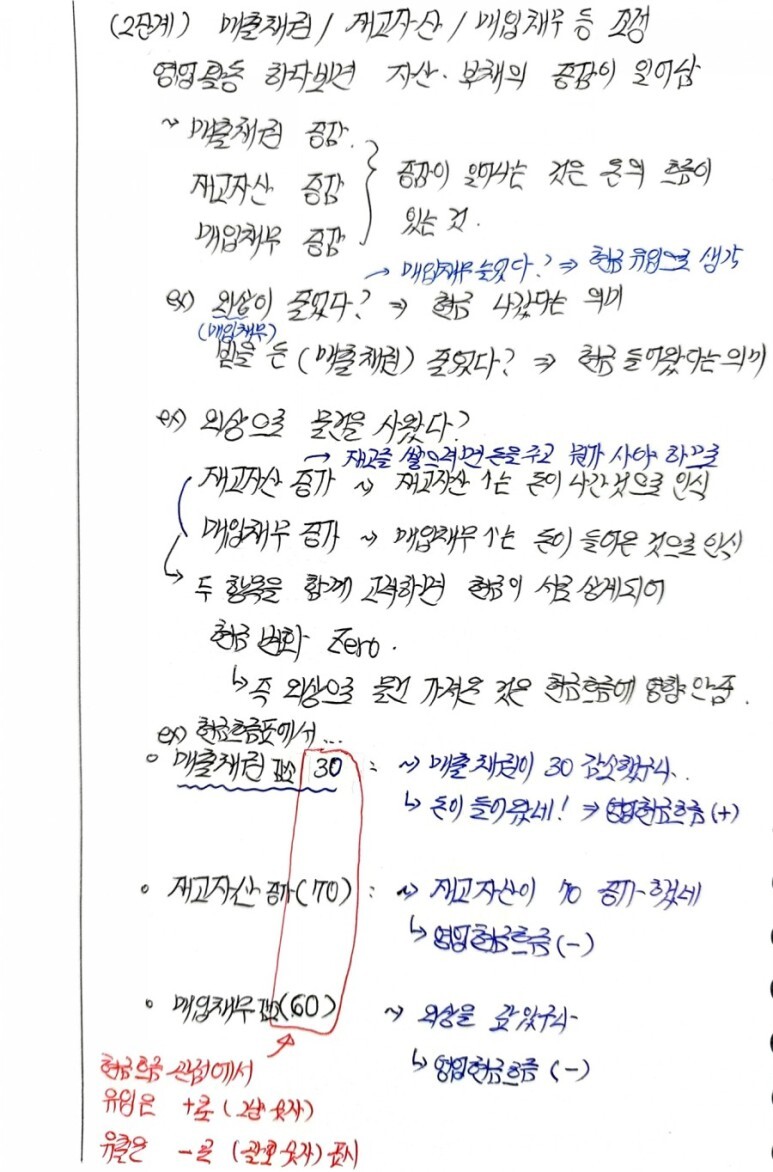 (2단계) 매출채권 / 재고자산 / 매입채무 등 조정
영업활동 하다보면 자산·부채의 증감이 일어남
~ 매출채권 증감.
재고자산 증감
매입채무 증감
증감이 일어나는 것은 돈의 흐름이
있는 것.
→ 매입채무 늘었다? ⇒ 현금유입으로 생각
ex) 외상이 줄었다? ⇒ 현금 나갔다는 의미
(매입채무)
받을 돈 (매출채권) 줄었다? ⇒ 현금 들어왔다는 의미
ex) 외상으로 물건을 사왔다?
→ 재고를 쌓으려면 돈을 주고 뭔가 사야 하므로
재고자산 증가 ~ 재고자산↑는 돈이 나간 것으로 인식
매입채무 증가 ~ 매입채무↑는 돈이 들어온 것으로 인식
↳ 두 항목을 함께 고려하면 현금이 서로 상계되어
현금 변화 Zero.
↳ 즉 외상으로 물건 가져온 것은 현금흐름에 영향 안줌.
ex) 현금흐름표에서...
• 매출채권 감소 30 : ~ 매출채권이 30 감소했구나..
↳ 돈이 들어왔네! ⇒ 영업현금흐름 (+)
• 재고자산 증가 (70) : ~ 재고자산이 70 증가했네
↳ 영업현금흐름 (-)
• 매입채무 감소 (60) ~ 외상을 갚았구나
↳ 영업현금흐름 (-)
현금흐름 관점에서
유입은 +로 (그냥 숫자)
유출은 -로 (괄호 숫자) 표시